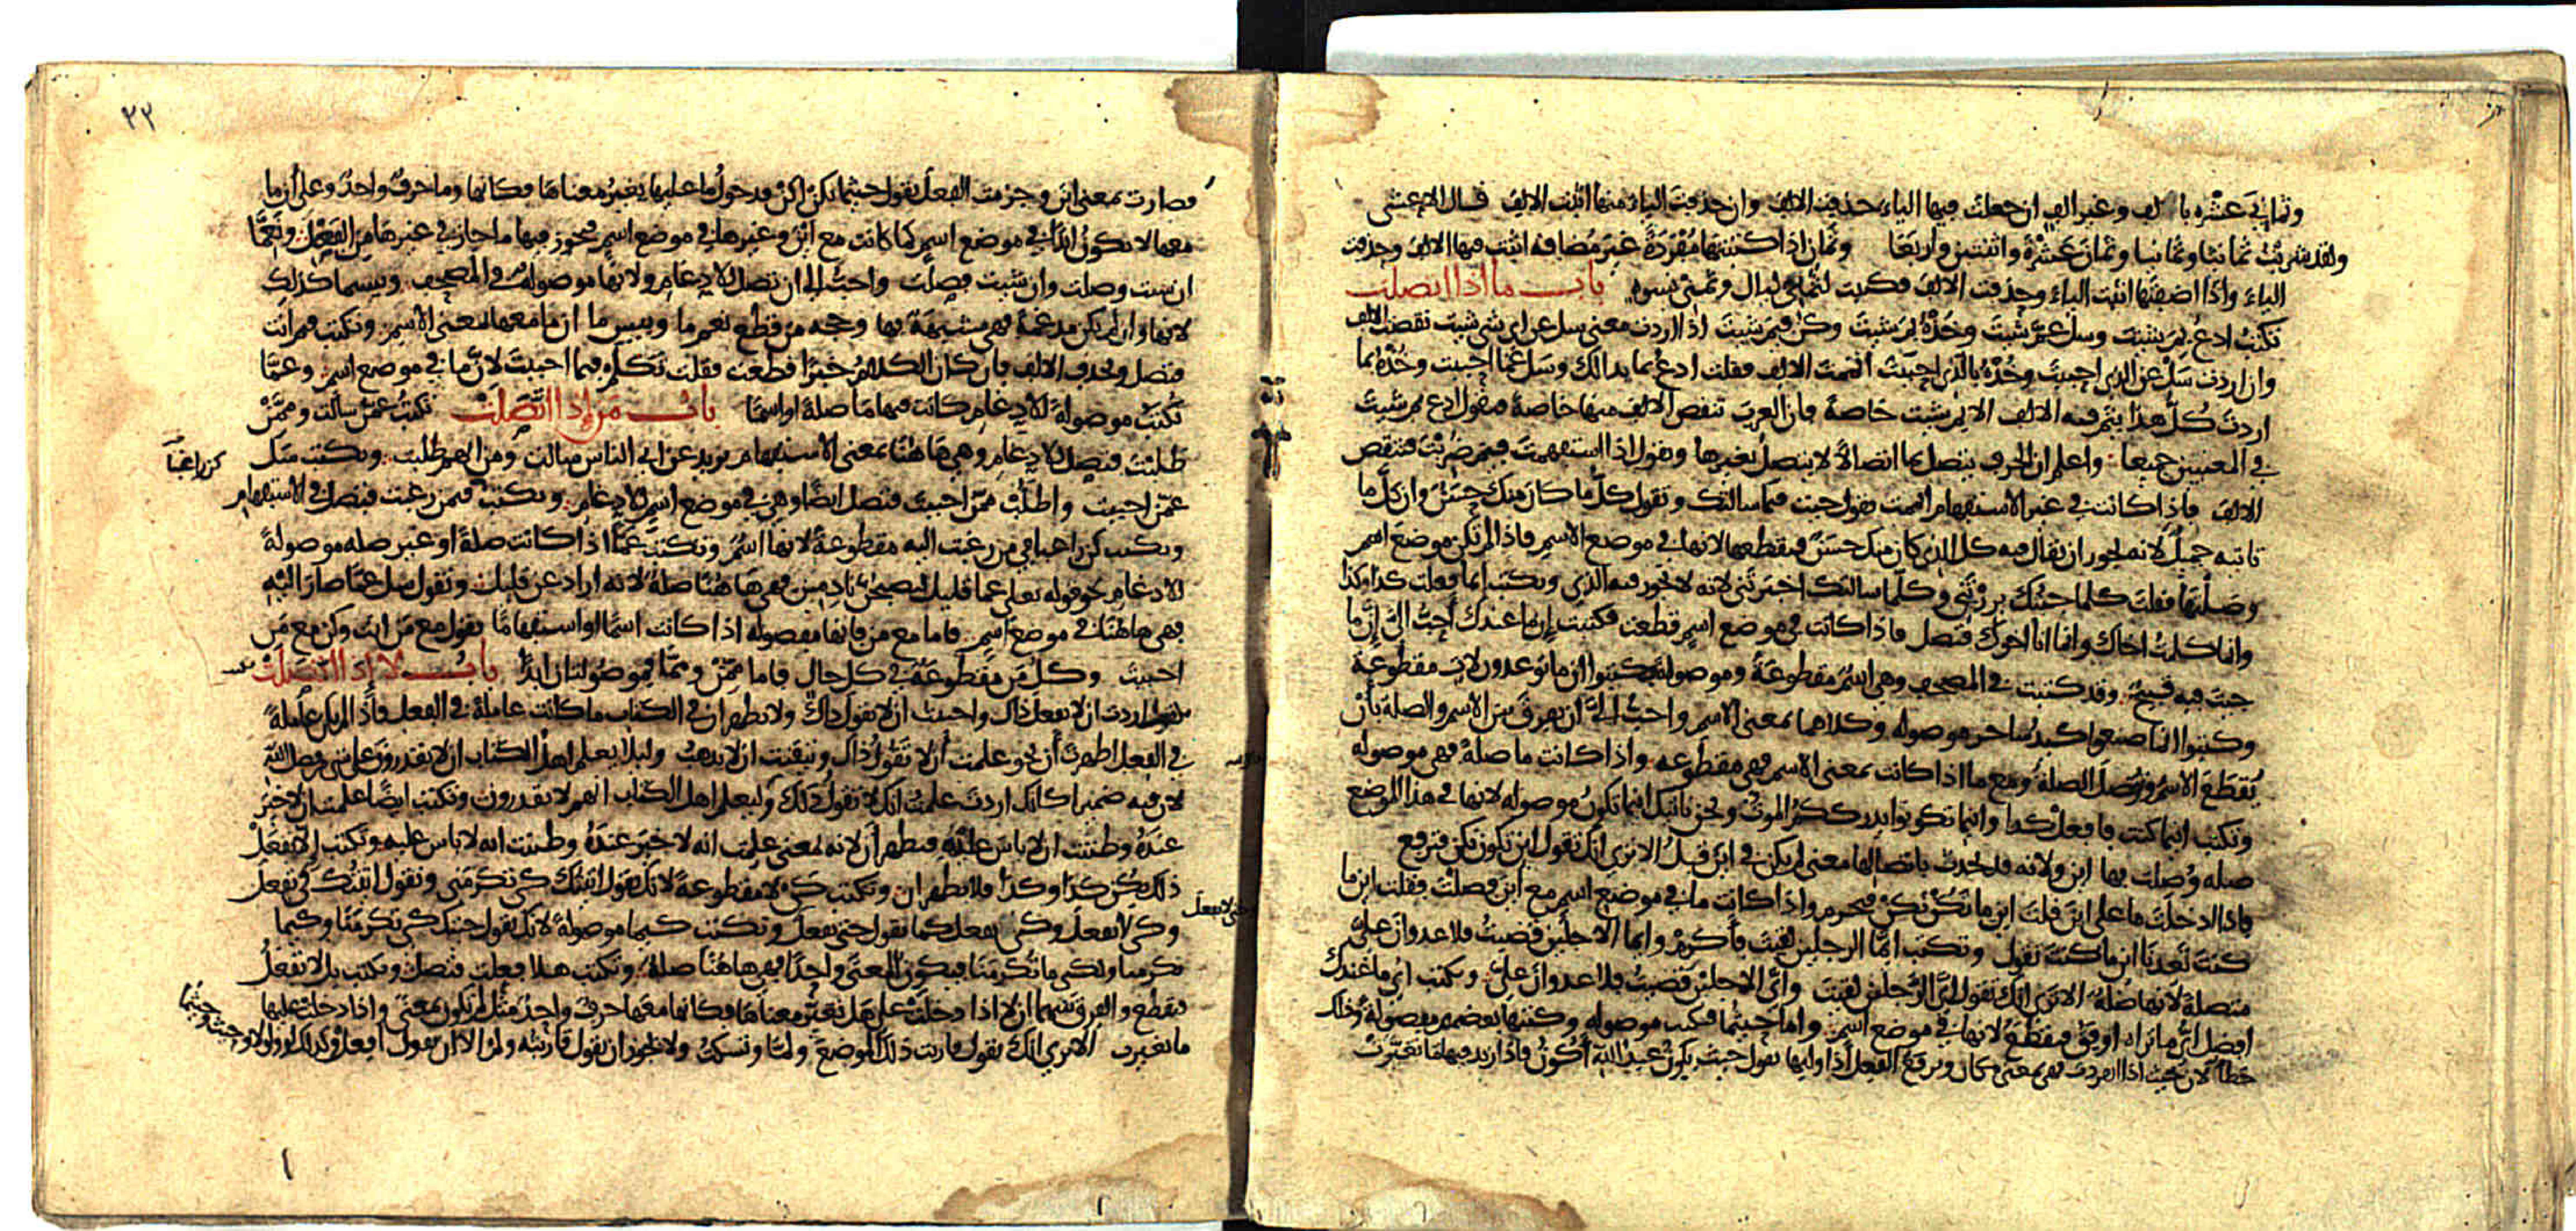 وثماني عشرة بالف وغير الف ان جعلت فيها الياء حذفت الالف وان حذفت الياء منها اثبت الالف قال الاعشى
ولقد شربت ثمانيا وثمانيا وثمان عشرة واثنتين واربعا وثمان اذا كتبتها مفردة غير مضافة اثبت فيها الالف وحذفت
الياء واذا اضفتها اثبت الياء وحذفت الالف فكتبت لثمني ليال وثمني نسوة باب ما اذا اتصلت
تكتب ادع بم شئت وسل عم شئت وخذه بم شئت وكن فيم شئت اذا اردت معنى سل عن اي شي شئت نقصت الالف
وان اردت سل عن الذي احببت وخذه بالذي احببت اتممت الالف فقلت ادع بما بدا لك وسل عما احببت وخذه بما
اردت كل هذا يتم فيه الالف الا بم شئت خاصة فان العرب تنقص الالف منها خاصة فتقول ادع بم شئت
في المعنيين جميعا واعلم ان الحرف يتصل بما اتصالا لا يتصل بغيرها وتقول اذا استفهمت فيم ضربت فتنقص
الالف فاذا كانت في غير الاستفهام اتممت تقول جيت فيما سالتك وتقول كل ما كان منك حسن وان كل ما
تاتيه جميل لانه يجوز ان يقال فيه كل الذي كان منك حسن فتقطعها لانها في موضع الاسم فاذا لم تكن موضع اسم
وصلتها فقلت كلما جئتك بررتني وكلما سالتك اخبرتني لانه لا يجوز فيه الذي وتكتب انما فعلت كذا وكذا
وانما كلمت اخاك وانما انا اخوك فتصل فاذا كانت في موضع اسم قطعت فكتبت ان ما عندك احب الي ان ما
جيت فيه قبيح وقد كتبت في المصحف وهي اسم مقطوعة وموصولة كتبوا ان ما توعدون لات مقطوعة
وكتبوا انما صنعوا كيد ساحر موصولة وكلاهما بمعنى الاسم واحب الي ان يفرق بين الاسم والصلة بان
يقطع الاسم وتوصل الصلة ومع ما اذا كانت بمعنى الاسم فهي مقطوعه واذا كانت ما صلة فهي موصوله
وتكتب اينما كنت فافعل كذا واينما تكونوا يدرككم الموت ونحن ناتيك اينما تكون موصوله لانها في هذا الموضع
صله وصلت بها اين ولانه قد يحدث باتصالها معنى لم يكن في اين قبل الا ترى انك تقول اين تكون نكن فترفع
فاذا ادخلت ما على اين قلت اين ما تكن نكن فتجزم واذا كانت ما في موضع اسم مع اين فصلت فقلت اين ما
كنت تعدنا اين ما كنت تقول وتكتب ايما الرجلين لقيت فاكرم وايما الاجلين قضيت فلا عدوان علي
متصلة لانها صلة الا ترى انك تقول اي الرجلين لقيت واي الاجلين قضيت فلا عدوان علي وتكتب اي ما عندك
افضل اي ما تراه اوفق فتقطع لانها في موضع اسم واما حيثما فكتب موصوله وكتبها بعضهم مفصوله وذلك
خطا لان حيث اذا انفردت فهي بمعنى مكان ويرفع الفعل اذا وليها تقول حيث يكون عبد الله اكون فاذا زيد فيها ما تغيرت
٢٢
فصارت بمعنى اين وجزمت الفعل تقول حيثما تكن اكن فدخول ما عليها يغير معناها فكانها وما حرف واحد وعلى ان ما
معها لا تكون ابدا في موضع اسم كما كانت مع اين وغيرها في موضع اسم فيجوز فيها ما جاز في غيرها من الفصل ونعما
ان شئت وصلت وان شئت فصلت واحب الي ان تصل للادغام ولانها موصولة في المصحف وبيسما كذلك
لانها وان لم تكن مدغمة فهي مشبهة بها وحجة من قطع نعم ما وبيس ما ان ما معها بمعنى الاسم وتكتب فيم انت
فتصل وتحذف الالف فان كان الكلام خبرا قطعت فقلت تكلم فيما احببت لان ما في موضع اسم وعما
تكتب موصولة للادغام كانت فيها ما صلة او اسما باب من اذا اتصلت تكتب عمن سالت وممن
طلبت فتصل للادغام وهي ها هنا بمعنى الاستفهام تريد عن اي الناس سالت ومن ايهم طلبت وتكتب سل
عمن احببت واطلب ممن احببت فتصل ايضا وهي في موضع اسم للادغام وتكتب فيمن رغبت فتصل في الاستفهام
كن راغبا
وتكتب كن راغبا في من رغبت اليه مقطوعة لانها اسم وتكتب عما اذا كانت صلة او غير صله موصولة
للادغام نحو قوله تعالى عما قليل ليصبحن نادمين فهي ها هنا صلة لانه اراد عن قليل وتقول سل عما صار اليه
فهي ها هنا في موضع اسم فاما مع من فانها مفصوله اذا كانت اسما او استفهاما تقول مع من انت وكن مع من
احببت وكل من مقطوعة في كل حال فاما ممن ومما فموصولتان ابدا باب لا اذا اتصلت
اردت ان لا تفعل ذاك واحببت ان لا تقول ذاك ولا تظهر ان في الكتاب ما كانت عاملة في الفعل فاذا لم تكن عاملة
في الفعل اظهرت ان نحو علمت ان لا تقول ذاك وتيقنت ان لا يذهب وليلا يعلم اهل الكتاب ان لا يقدرون على شي من فضل الله
لان فيه ضميرا كانك اردت علمت انك لا تقول ذلك وليعلم اهل الكتاب انهم لا يقدرون وتكتب ايضا علمت ان لا خير
عنده وظننت ان لا باس عليه فتظهر ان لانه بمعنى علمت انه لا خير عنده وظننت انه لا باس عليه وتكتب الا تفعل
ذلك يكن كذا وكذا فلا تظهر ان وتكتب كي لا مقطوعة لانك تقول اتيتك كي تكرمني وتقول اتيتك كي تفعل
وكي لا تفعل وكي تفعل كما تقول حتى تفعل وتكتب كيما موصولة لانك تقول جيتك كي تكرمنا وكيما
حتى لا تفعل
تكرمنا ولكي ما تكرمنا فيكون المعنى واحدا فهي ها هنا صلة وتكتب هلا فعلت فتصل وتكتب بل لا تفعل
فتقطع والفرق بينهما ان لا اذا دخلت على هل تغير معناها فكانها معها حرف واحد مثل لم تكون بمعنى واذا دخلت عليها
ما تغيرت الا ترى انك تقول قاربت ذلك الموضع ولما وتسكت ولا يجوز ان تقول قاربته ولم الا ان تقول افعل وكذلك لو ولولا وحيث وحيثما